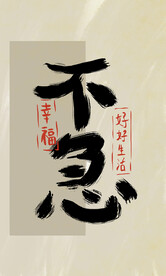 不急
幸福
好好生活